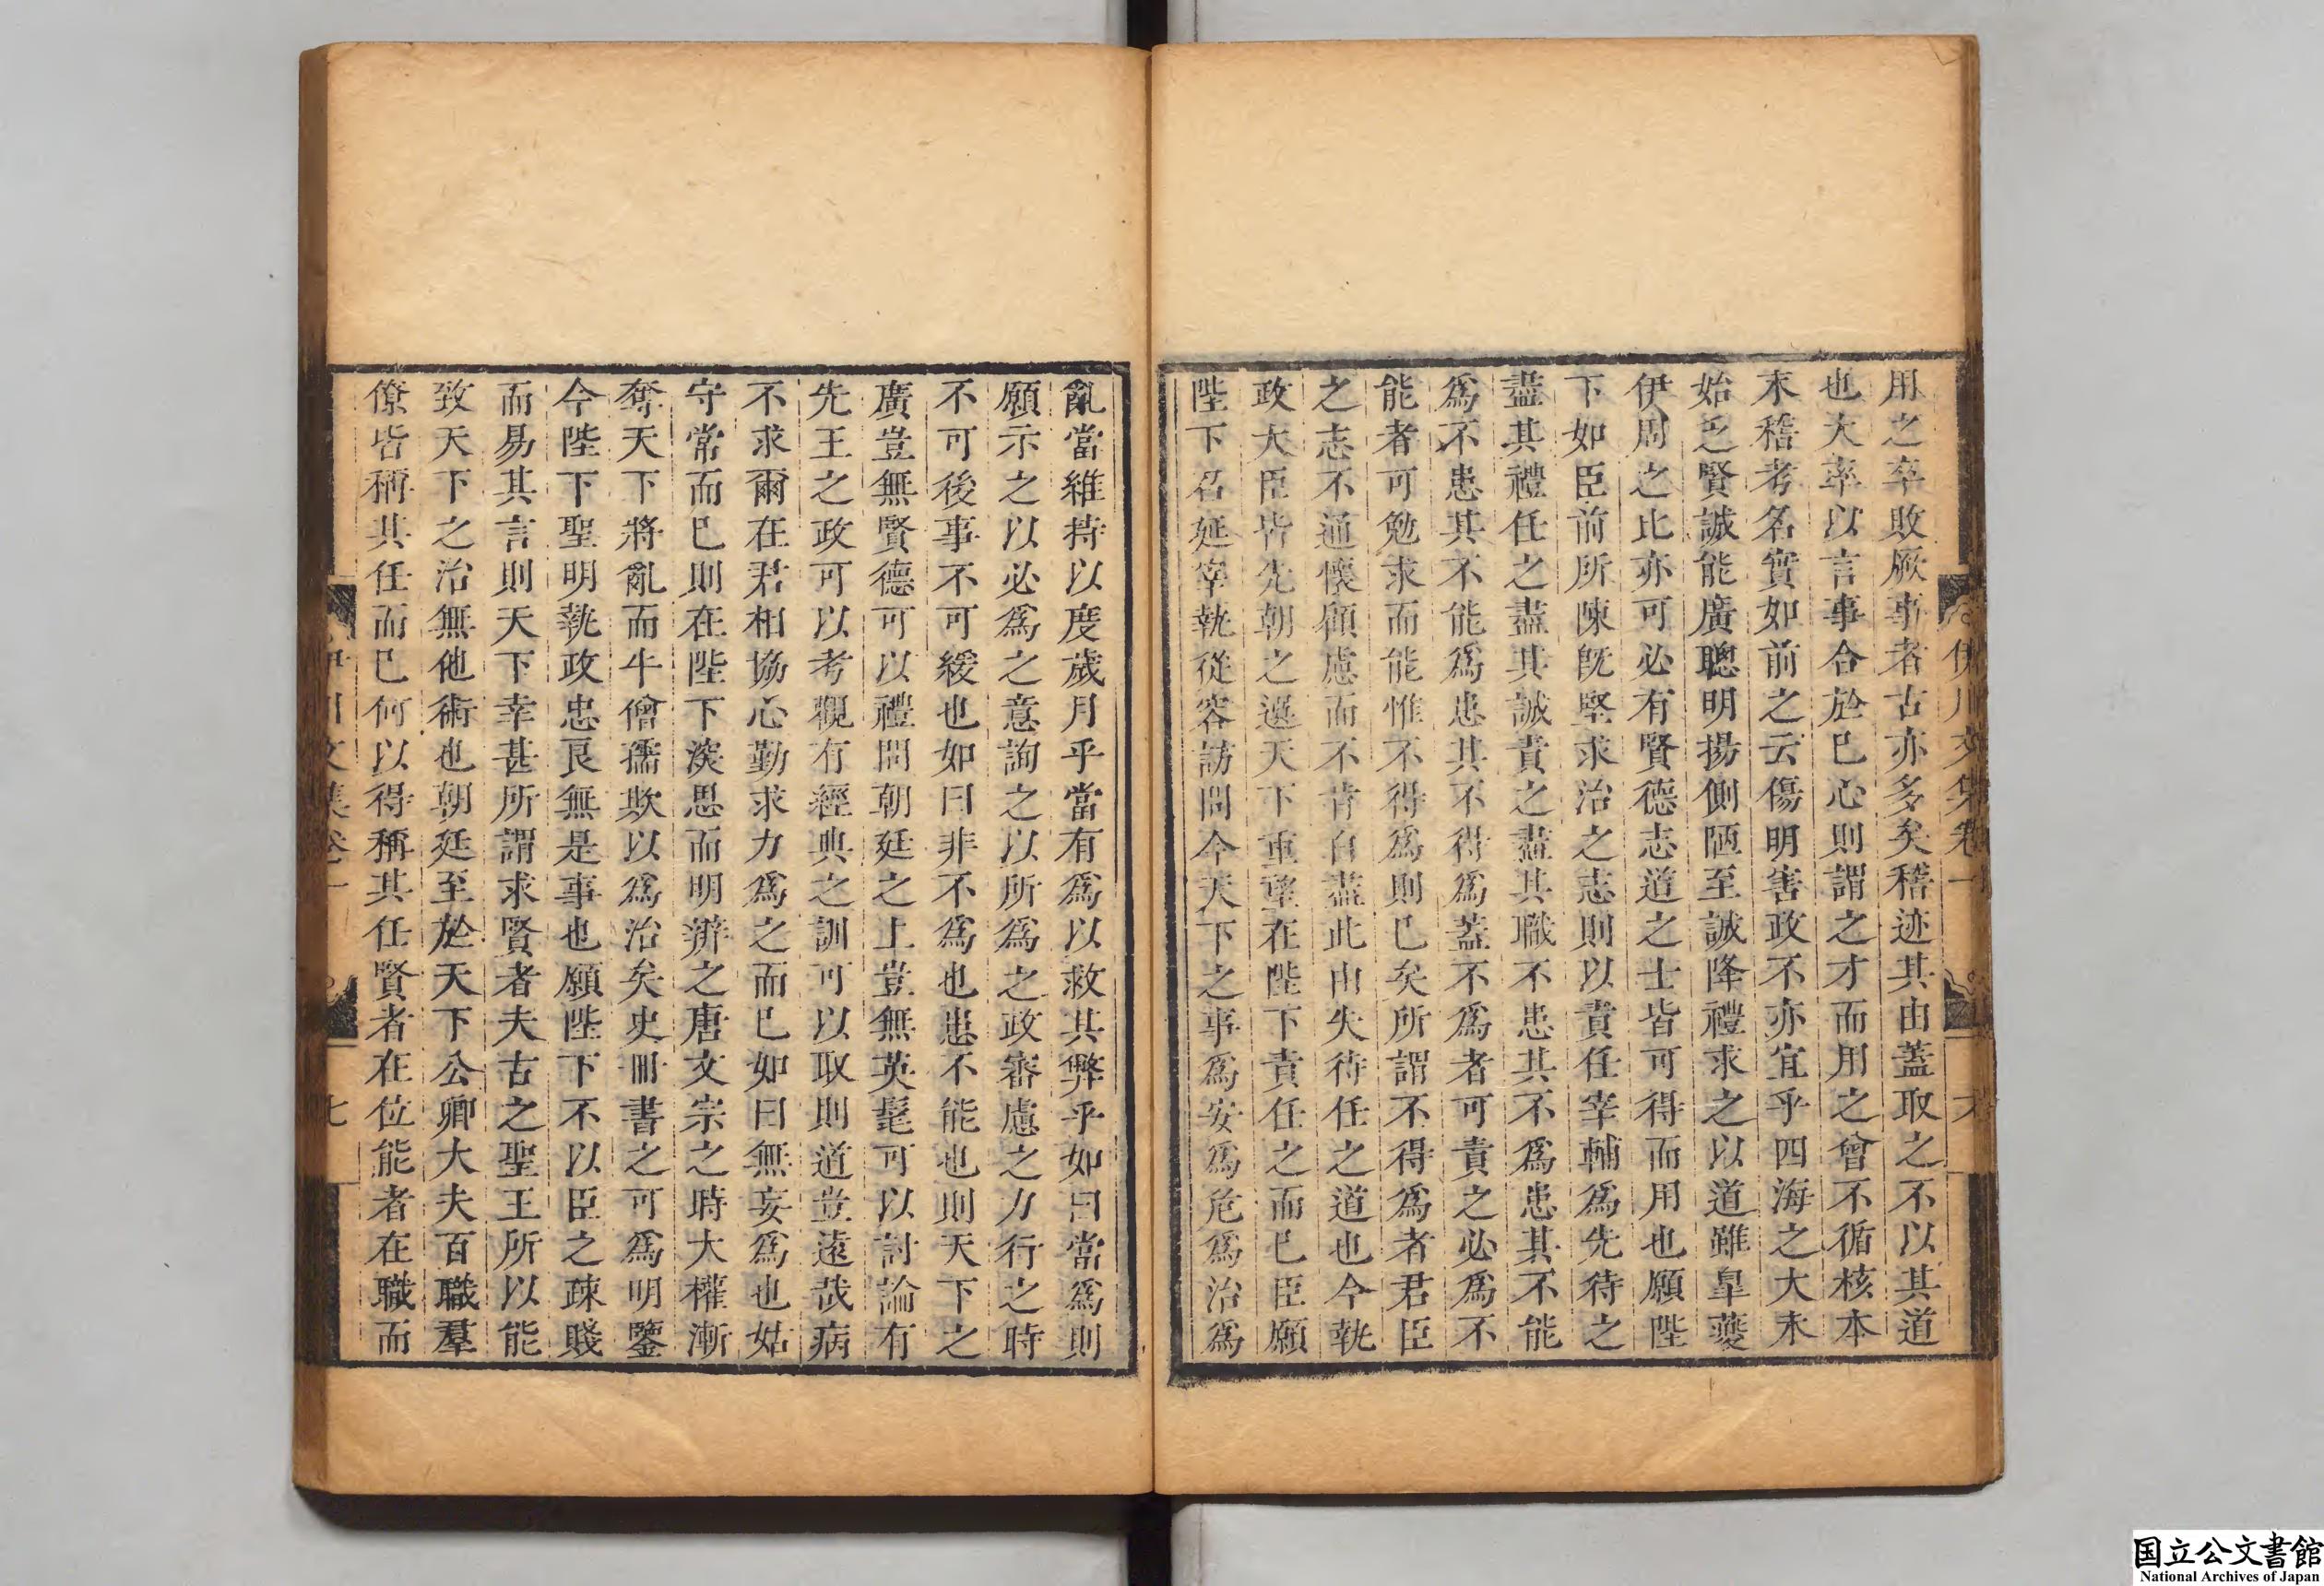 伊川文集卷一
六
用之卒敗厥事者古亦多矣稽迹其由蓋取之不以其道
也大率以言事合於已心則謂之才而用之曾不循核本
末稽考名實如前之云傷明害政不亦宜乎四海之大未
始乏賢誠能廣聰明揚側陋至誠降禮求之以道雖臯夔
伊周之比亦可必有賢德志道之士皆可得而用也願陛
下如臣前所陳旣堅求治之志則以責任宰輔爲先待之
盡其禮任之盡其誠責之盡其職不患其不爲患其不能
爲不患其不能爲患其不得爲蓋不爲者可責之必爲不
能者可勉求而能惟不得爲則已矣所謂不得爲者君臣
之志不通懷顧慮而不肯自盡此由失待任之道也今執
政大臣皆先朝之選天下重望在陛下責任之而已臣願
陛下召延宰執從容訪問今天下之事爲安爲危爲治爲
亂當維持以度歲月乎當有爲以救其弊乎如曰當爲則
願示之以必爲之意詢之以所爲之政審慮之力行之時
不可後事不可緩也如曰非不爲也患不能也則天下之
廣豈無賢德可以禮問朝廷之上豈無英髦可以討論有
先王之政可以考觀有經典之訓可以取則道豈遠哉病
不求爾在君相協心勤求力爲之而已如曰無妄爲也姑
守常而已則在陛下深思而明辨之唐文宗之時大權漸
奪天下將亂而牛僧孺欺以爲治矣史冊書之可爲明鑒
今陛下聖明執政忠良無是事也願陛下不以臣之疎賤
而易其言則天下幸甚所謂求賢者夫古之聖王所以能
致天下之治無他術也朝廷至於天下公卿大夫百職羣
僚皆稱其任而已何以得稱其任賢者在位能者在職而
伊川文集卷一
七
国立公文書館
National Archives of Japan